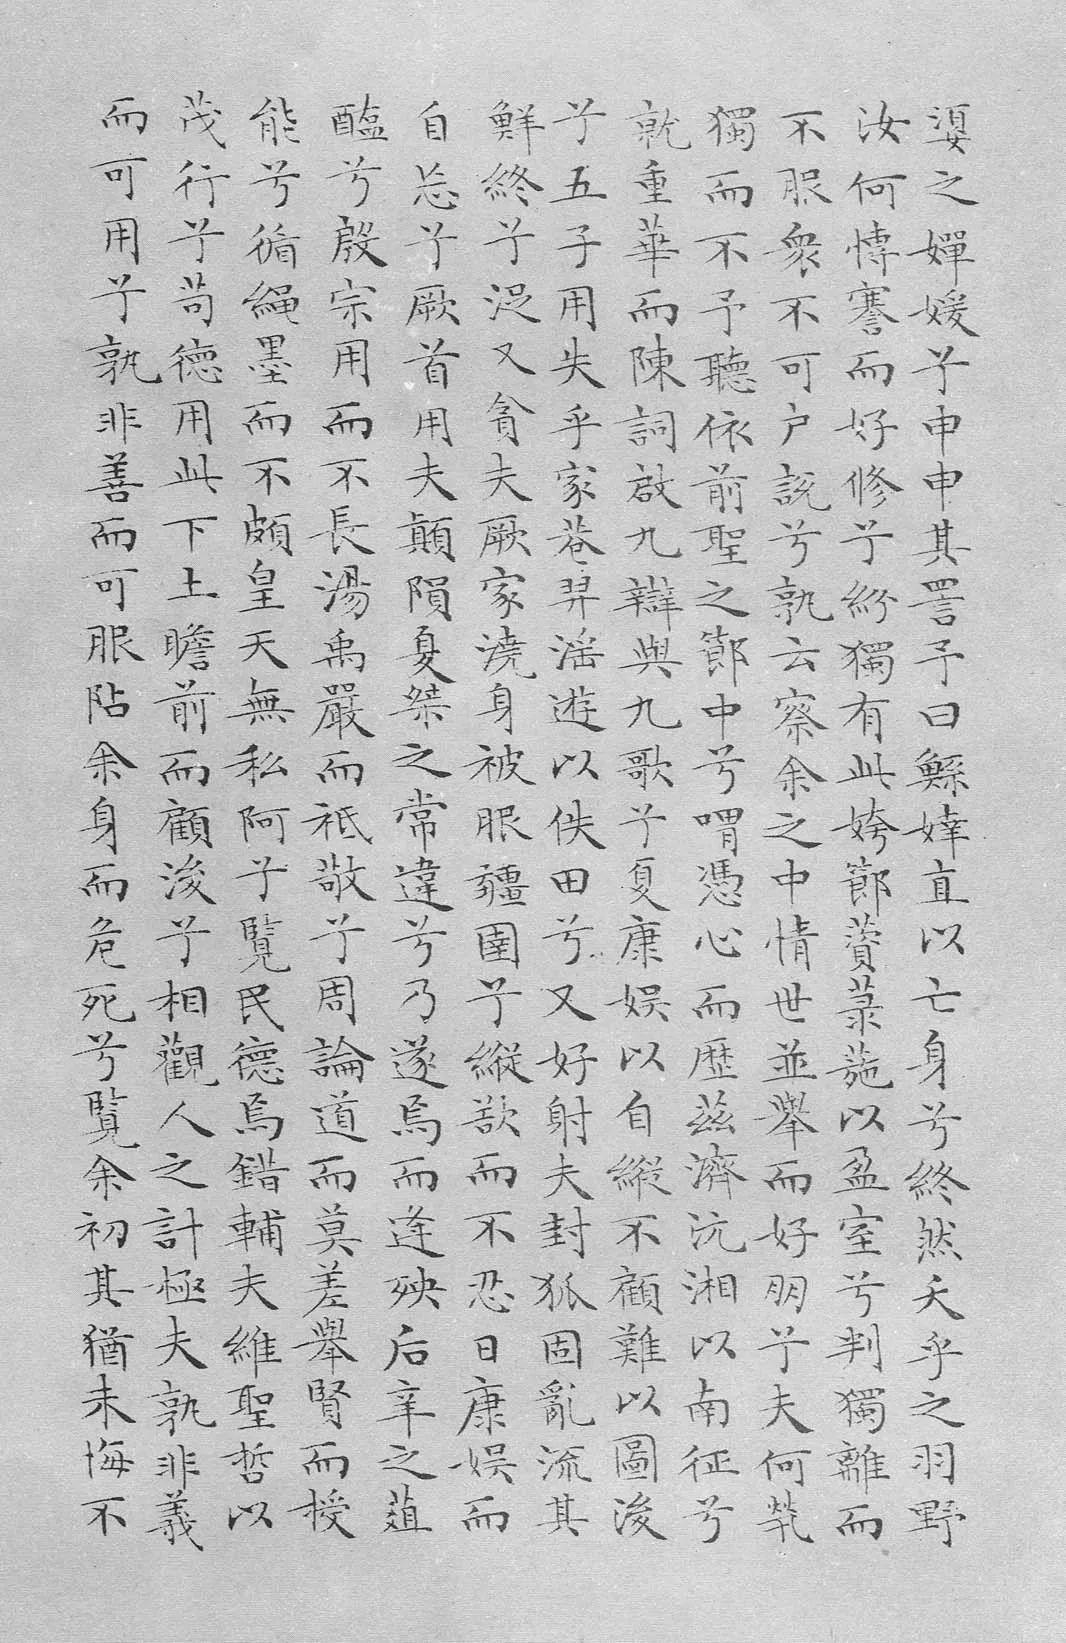 媭之嬋媛兮申申其詈予曰鯀婞直以亡身兮終然夭乎之羽野
汝何愽謇而好修兮紛獨有此姱節薋菉葹以盈室兮判獨離而
不服衆不可户說兮孰云察余之中情世並舉而好朋兮夫何煢
獨而不予聽依前聖之節中兮喟憑心而歷茲濟沅湘以南征兮
就重華而陳詞啟九辯與九歌兮夏康娱以自縱不顧難以圖後
兮五子用失乎家巷羿滛遊以佚田兮又好射夫封狐固亂流其
鮮終兮浞又貪夫厥家澆身被服彊圉兮縱欲而不忍日康娱而
自忘兮厥首用夫顛隕夏桀之常違兮乃遂焉而逢殃后辛之葅
醢兮殷宗用而不長湯禹嚴而祗敬兮周論道而莫差舉賢而授
能兮循繩墨而不頗皇天無私阿兮覽民德焉錯輔夫維聖哲以
茂行兮苟德用此下土瞻前而顧後兮相觀人之計極夫孰非義
而可用兮孰非善而可服阽余身而危死兮覽余初其猶未悔不